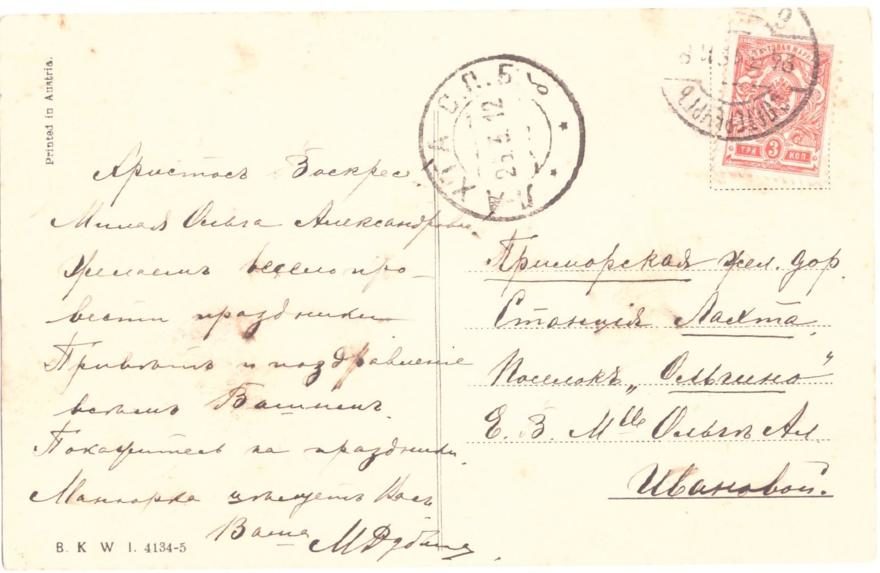 Printed in Austria.
Христосъ Воскрес
Милая Ольга Александровна
Желаемъ весело про-
вести праздники
Привѣтъ и поздравленіе
всѣмъ Вашимъ.
на праздники.
цѣлуетъ Васъ
Ваша
B. K. W. I. 4134-5
ЛАХТА С.П.Б.
25.3.12
ТРИ 3 КОП
Приморская жел. дор.
Станція Лахта
Поселокъ „Ольгино"
Е. В. Mlle Ольгѣ Ал.
Ивановой.